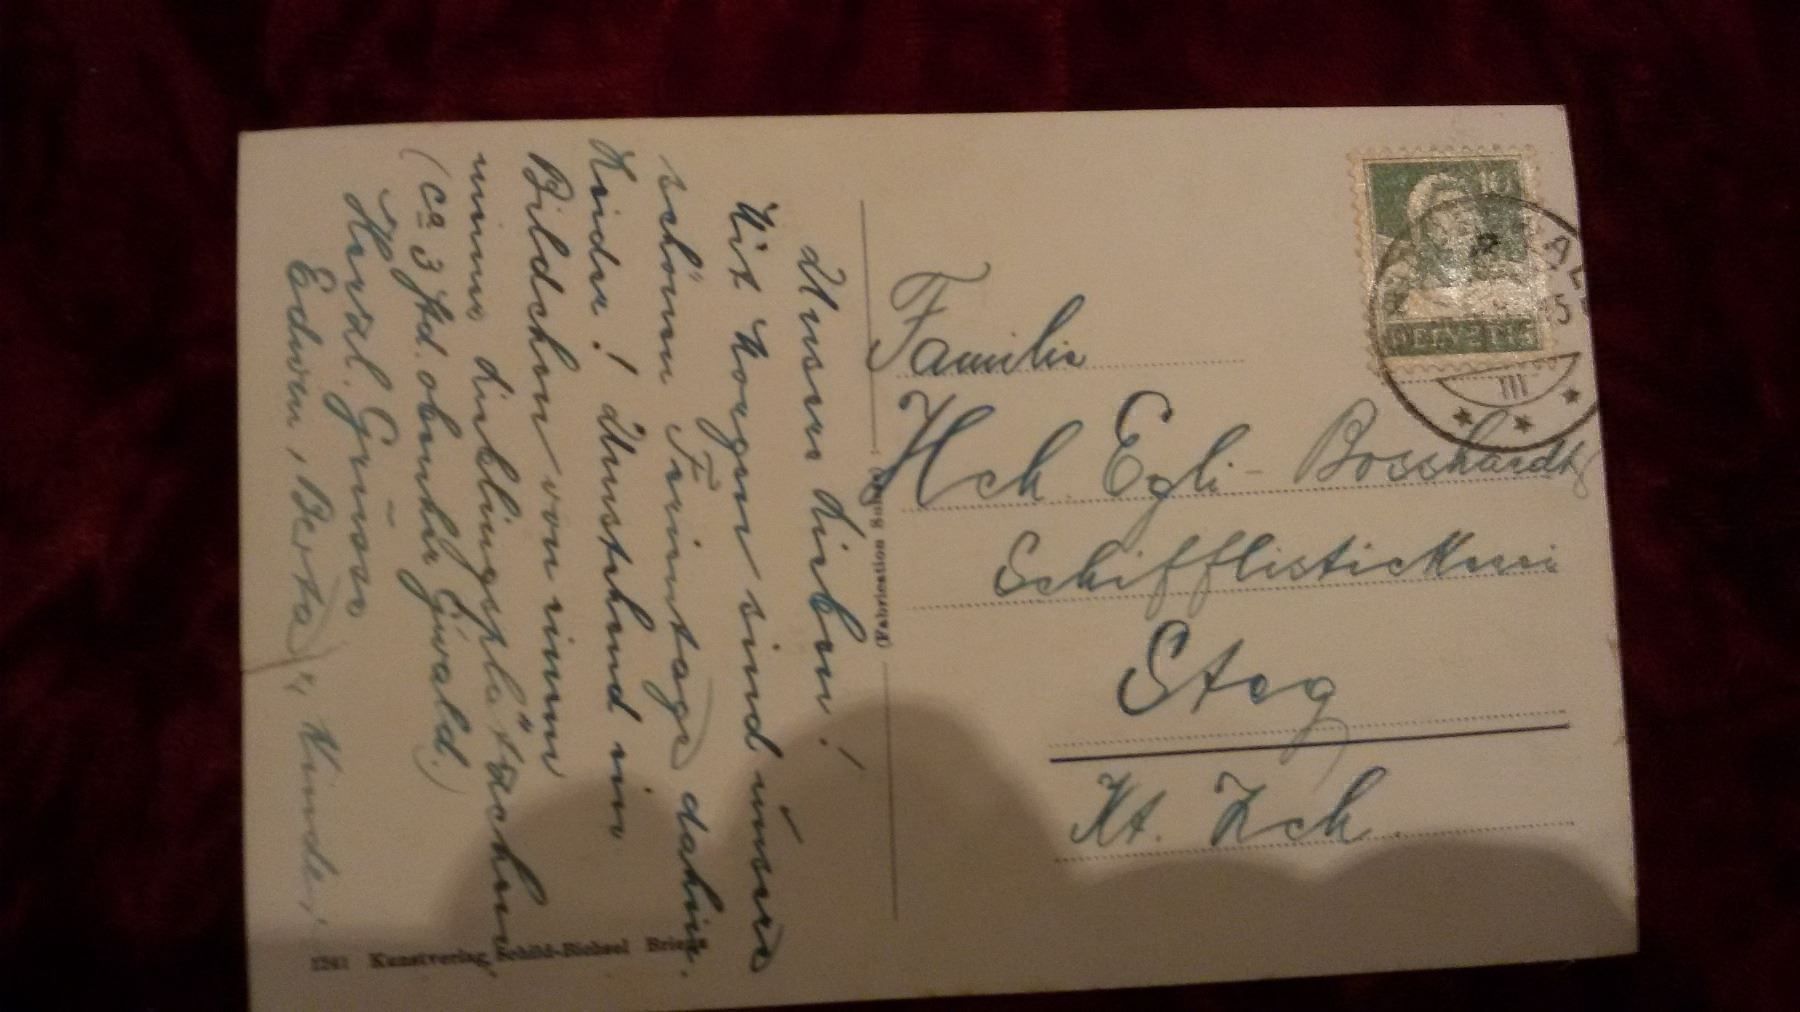 Unsere Lieben!
Mit Morgen sind unsere
schönen Ferientage dahin.
Leider! Umstehend ein
Bildchen von einem
meiner Lieblingsplätzchen.
(ca 3 Std. oberhalb Giswald.)
Herzl. Grüsse
Edwin, Berta u. Kinder.
1241 Kunstverlag Schild-Bichsel Brienz
(Fabrication Suisse)
10
HELVETIA
15
III
Familie
Hch. Egli-Bosshardt
Schifflistickerei
Steg
Kt. Zch.